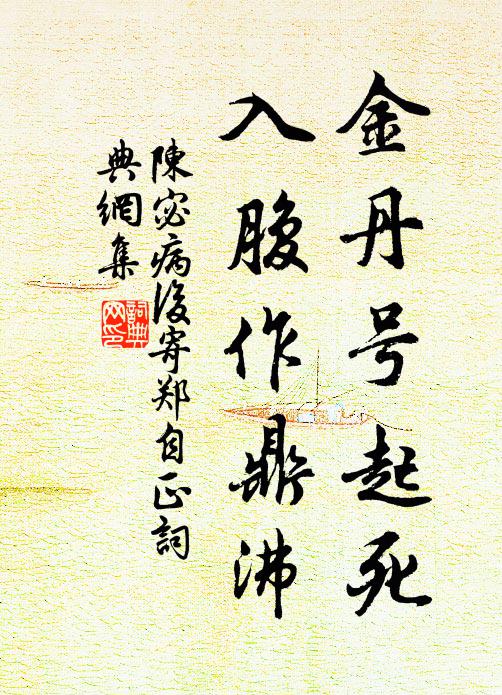 金丹号起死
入腹作鼎沸
陳宓病後寄郑自正詞
典網集
詞典
网印